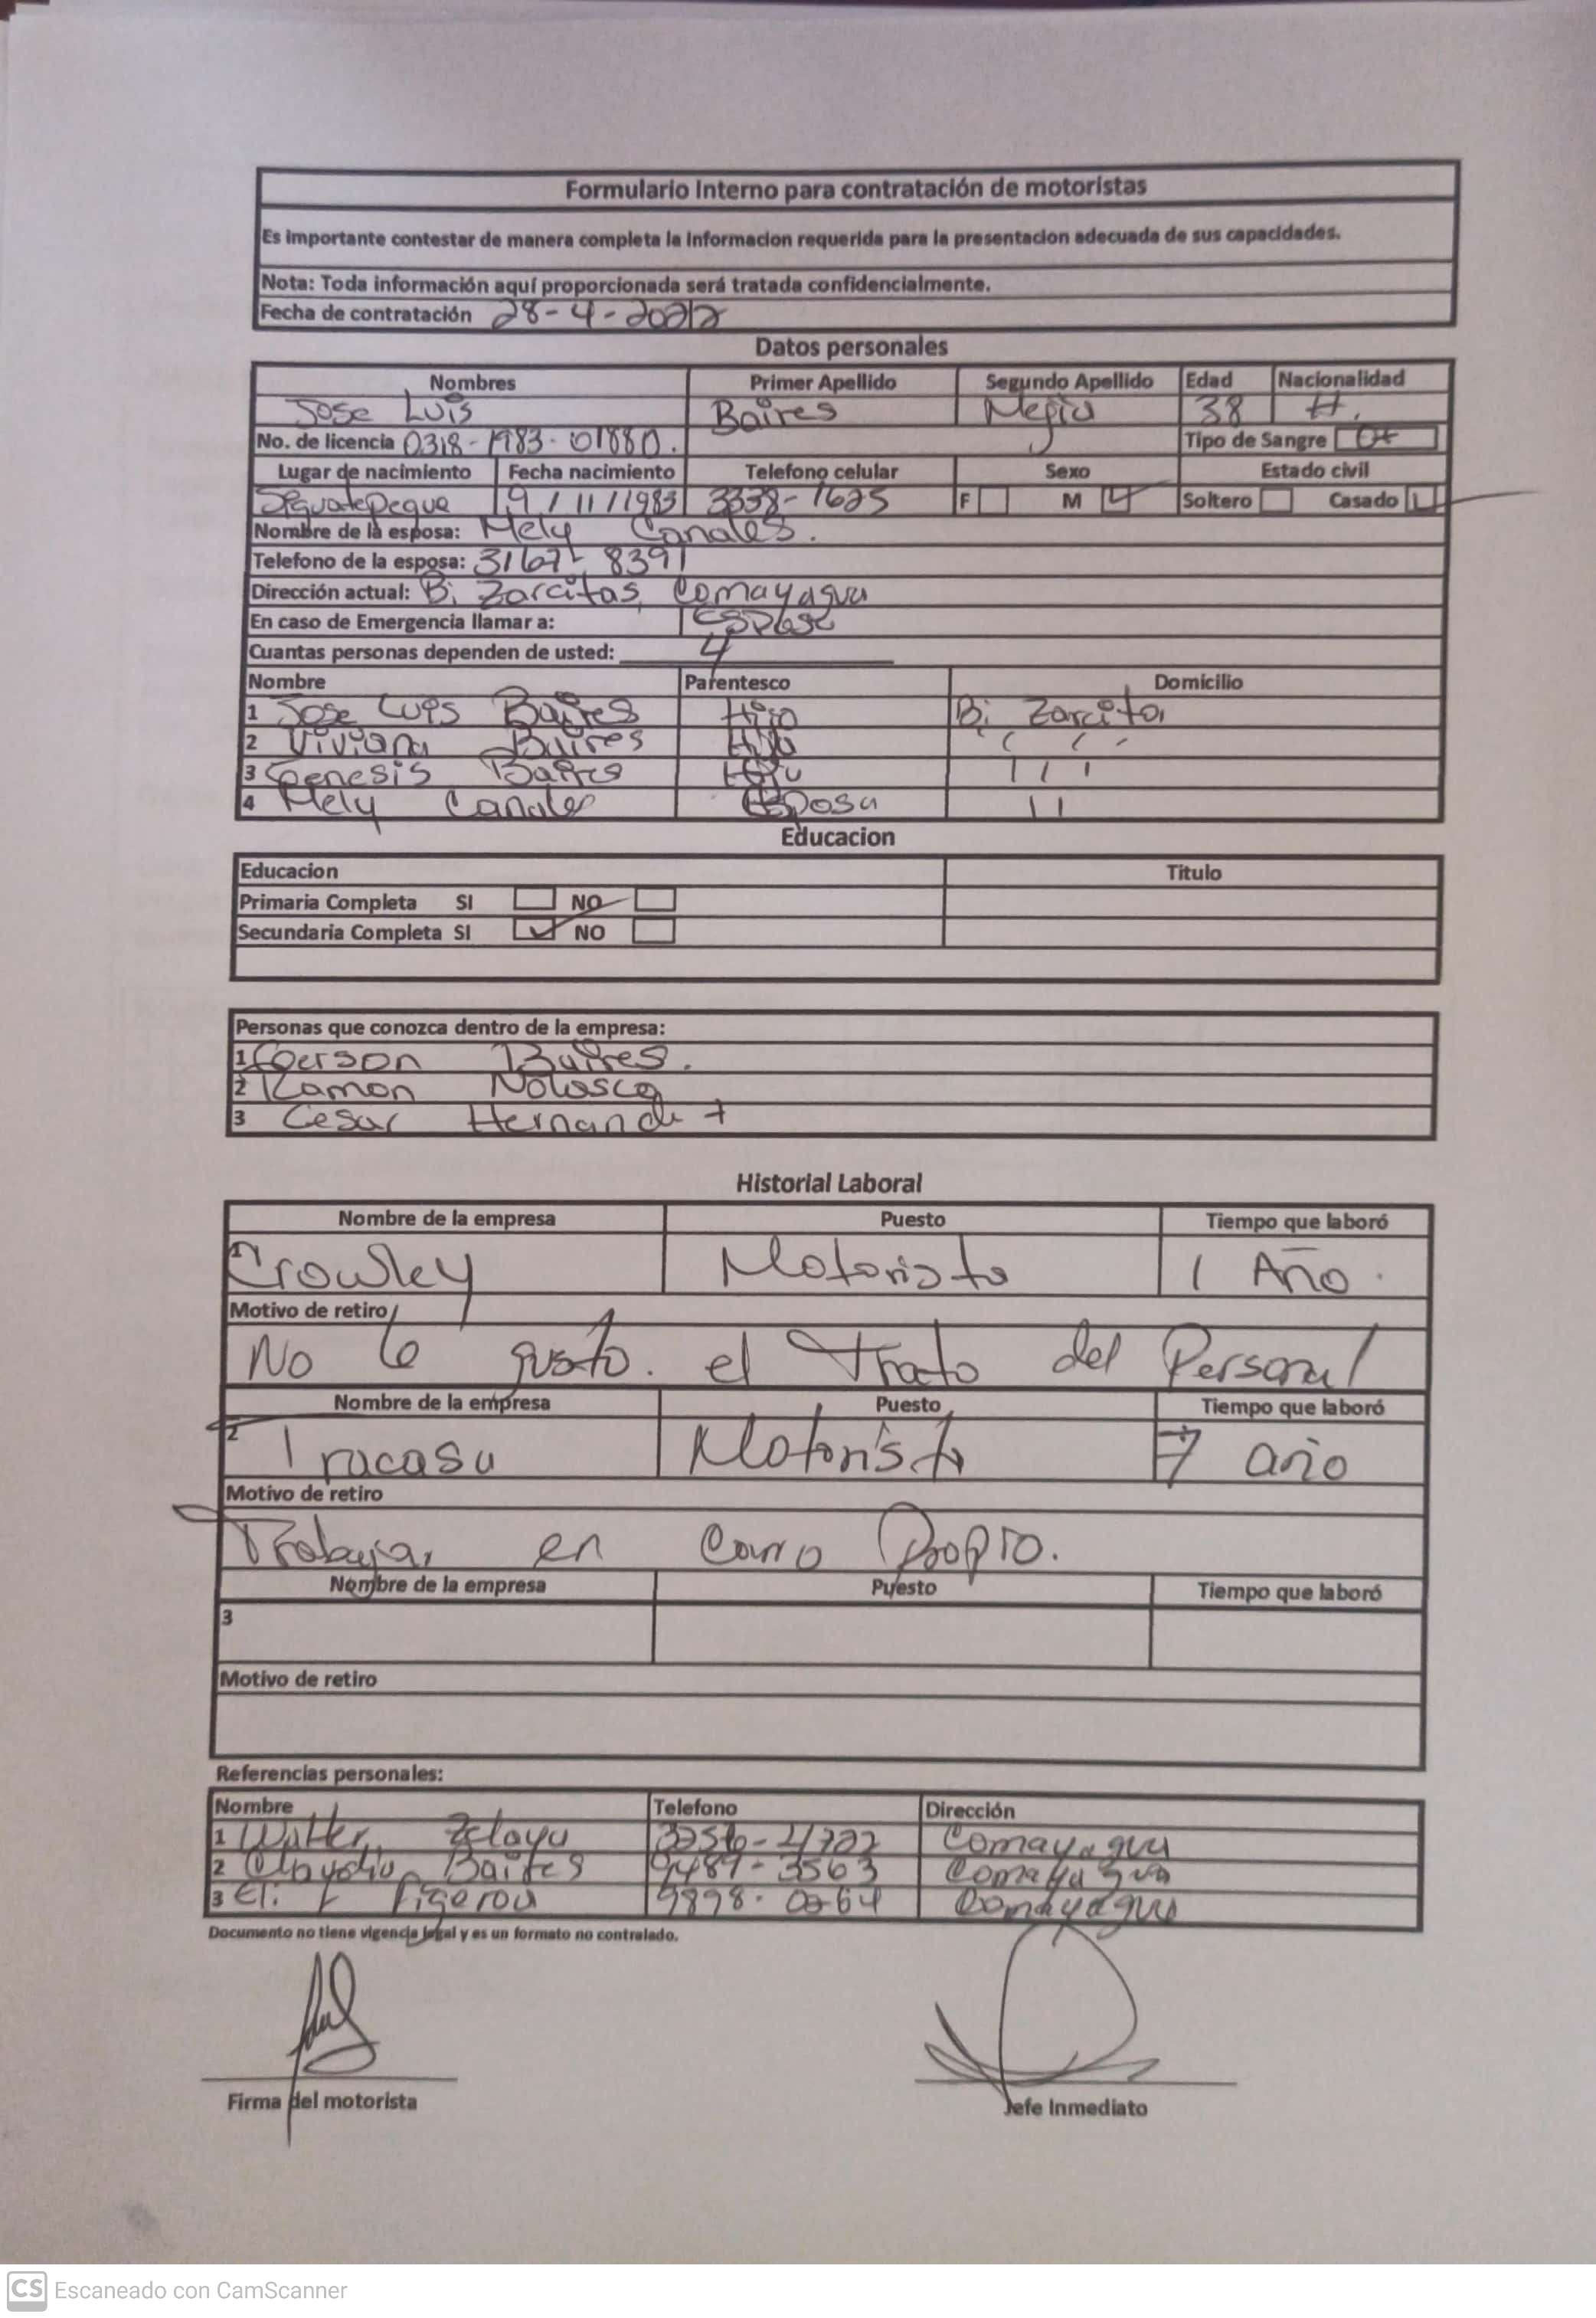 Formulario Interno para contratación de motoristas
Es importante contestar de manera completa la informacion requerida para la presentacion adecuada de sus capacidades.
Nota: Toda información aquí proporcionada será tratada confidencialmente.
Fecha de contratación 28-4-2022
Datos personales
Nombres Primer Apellido Segundo Apellido Edad Nacionalidad
Jose Luis Baires Mejia 38 H.
No. de licencia 0318-1983-01880. Tipo de Sangre O+
Lugar de nacimiento Fecha nacimiento Telefono celular Sexo Estado civil
Siguatepeque 19/11/1983 3338-1625 F M Soltero Casado
Nombre de la esposa: Mely Canales.
Telefono de la esposa: 3167-8391
Dirección actual: B. Zarcitas, Comayagua
En caso de Emergencia llamar a: Esposa
Cuantas personas dependen de usted: 4
Nombre Parentesco Domicilio
1 Jose Luis Baires Hijo B. Zarcitas
2 Viviana Baires Hija
3 Genesis Baires Hija
4 Mely Canales Esposa
Educacion
Educacion Titulo
Primaria Completa SI NO
Secundaria Completa SI NO
Personas que conozca dentro de la empresa:
1 Gerson Baires.
2 Ramon Nolasco
3 Cesar Hernandez
Historial Laboral
Nombre de la empresa Puesto Tiempo que laboró
1 Crowley Motorista 1 Año.
Motivo de retiro
No le gusto. el Trato del Personal
Nombre de la empresa Puesto Tiempo que laboró
2 Tracasa Motorista 7 año
Motivo de retiro
Trabajar en Carro Propio.
Nombre de la empresa Puesto Tiempo que laboró
3
Motivo de retiro
Referencias personales:
Nombre Telefono Dirección
1 Walter Zelaya Comayagua
2 Claudio Baires 9489-3563 Comayagua
3 Figeroa Comayagua
Documento no tiene vigencia legal y es un formato no contralado.
Firma del motorista Jefe Inmediato
CS Escaneado con CamScanner